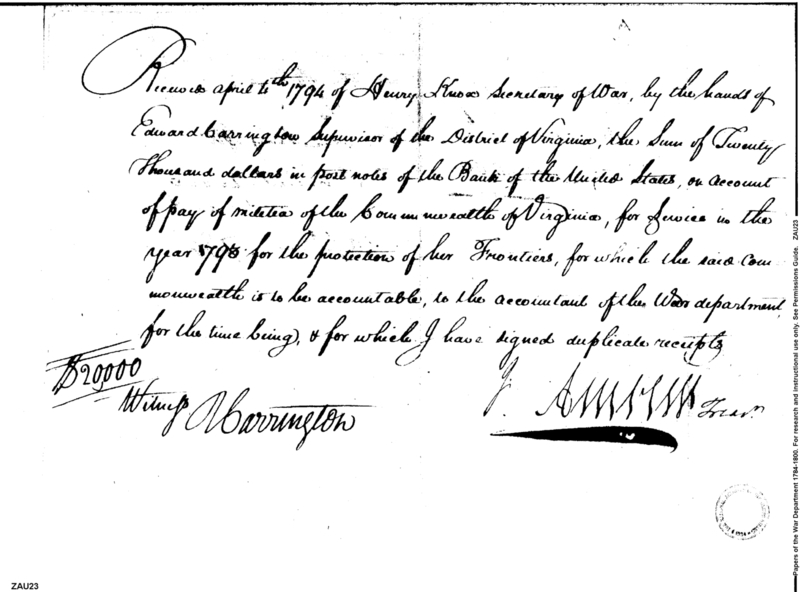 Received april 4th 1794 of Henry Knox Secretary of War, by the hands of
Edward Carrington Supervisor of the District of Virginia, the Sum of Twenty
Thousand dollars in post notes of the Bank of the United States, on account
of pay of militia of the Commonwealth of Virginia, for Service in the
year 1793 for the protection of her Frontiers, for which the said Com
monwealth is to be accountable, to the accountant of the War department,
for the time being, & for which I have signed duplicate receipts
$20,000
Witness
Carrington
J. Ambler Treasr
Papers of the War Department 1784-1800. For research and instructional use only. See Permissions Guide. ZAU23
ZAU23